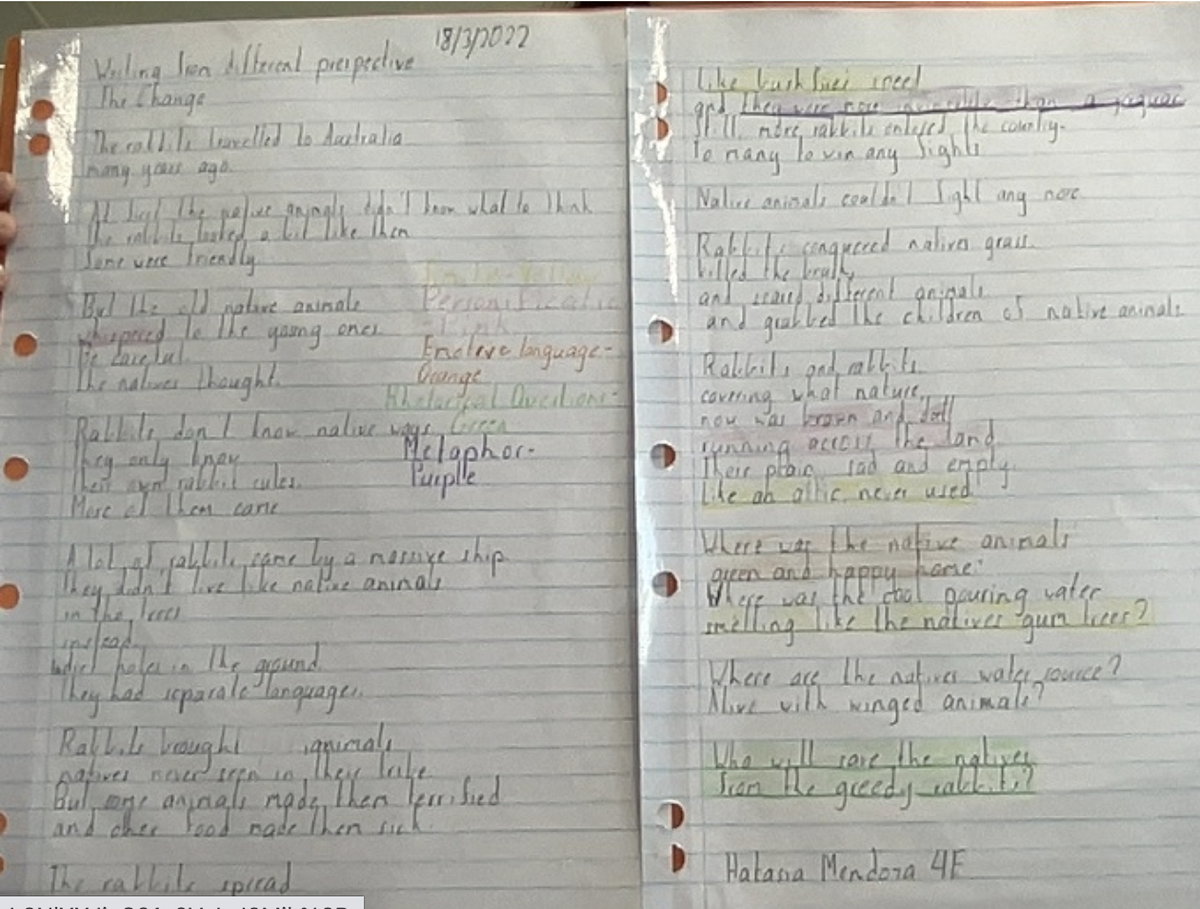 18/3/2022
Writing from different perspective
The Change
The rabbits travelled to Australia
many years ago.
At first the native animals didn't know what to think
The rabbits looked a bit like them
Some were friendly
But the old native animals
whispered to the young ones
Be careful.
The natives thought.
Rabbits don't know native ways
They only knew
their own rabbit rules.
More of them came
A lot of rabbits came by a massive ship
They didn't live like native animals
in the trees
instead
holes in the ground
They had separate languages.
Rabbits brought animals
natives never seen in their
But some animals made them terrified
and other food made them sick.
The rabbits spread
Simile-Yellow
Personificatio
-Pink
Emotive language-
Orange
Rhetorical Questions-
Green
Metaphor-
Purple
Like bush fires
and they were more than a jaguar
Still more rabbits entered the country.
To many to win any fights
Native animals couldn't fight any more
Rabbits conquered natives grass.
killed the
and scared different animals
and grabbed the children of native animals
Rabbits and rabbits
covering what nature,
now was brown and
running across the land
Their plain sad and empty
Like an attic never used
Where was the native animals
green and happy home?
Where was the cool pouring water
smelling like the natives gum trees?
Where are the natives water source?
Alive with winged animals?
Who will save the natives
from the greedy rabbits?
Hatana Mendoza 4F